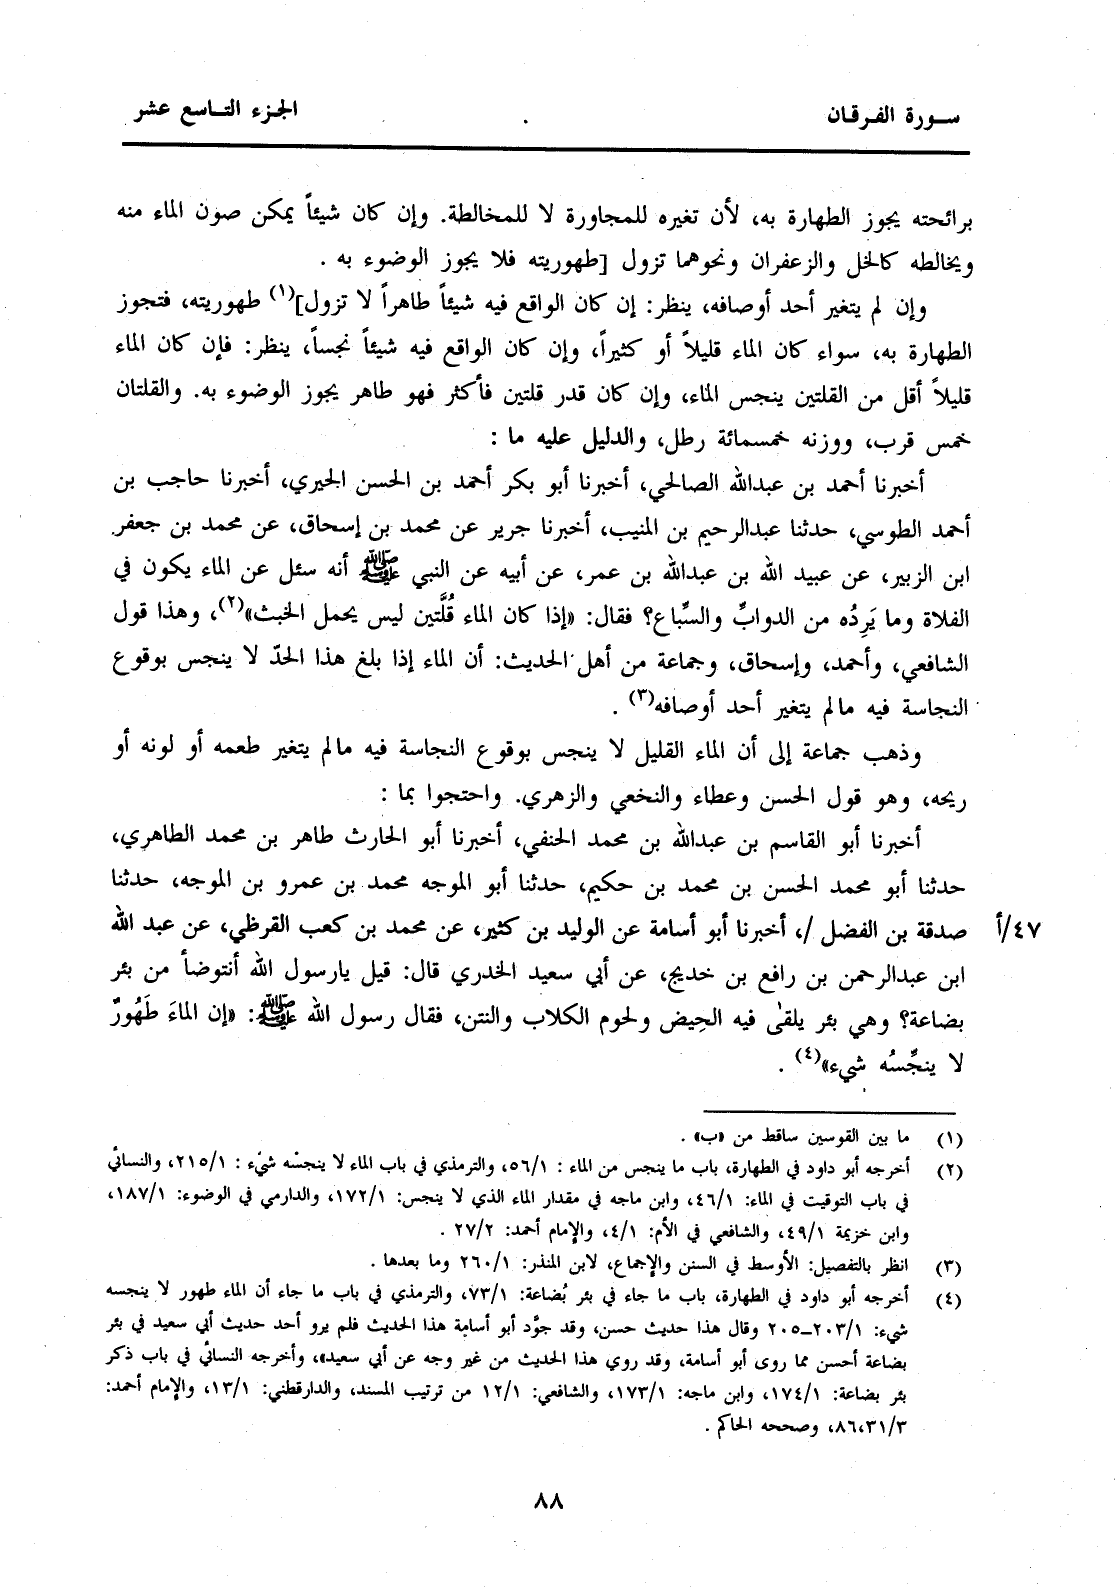 سورة الفرقان
الجزء التاسع عشر
برائحته يجوز الطهارة به، لأن تغيره للمجاورة لا للمخالطة. وإن كان شيئاً يمكن صون الماء منه
ويخالطه كالخل والزعفران ونحوهما تزول [طهوريته فلا يجوز الوضوء به .
وإن لم يتغير أحد أوصافه، ينظر: إن كان الواقع فيه شيئاً طاهراً لا تزول](١) طهوريته، فتجوز
الطهارة به، سواء كان الماء قليلاً أو كثيراً، وإن كان الواقع فيه شيئاً نجساً، ينظر: فإن كان الماء
قليلاً أقل من القلتين ينجس الماء، وإن كان قدر قلتين فأكثر فهو طاهر يجوز الوضوء به. والقلتان
خمس قرب، ووزنه خمسمائة رطل، والدليل عليه ما :
أخبرنا أحمد بن عبدالله الصالحي، أخبرنا أبو بكر أحمد بن الحسن الحيري، أخبرنا حاجب بن
أحمد الطوسي، حدثنا عبدالرحيم بن المنيب، أخبرنا جرير عن محمد بن إسحاق، عن محمد بن جعفر
ابن الزبير، عن عبيد الله بن عبدالله بن عمر، عن أبيه عن النبي ﷺ أنه سئل عن الماء يكون في
الفلاة وما يَرِدُه من الدوابِّ والسِّباع؟ فقال: «إذا كان الماء قُلَّتين ليس يحمل الخبث»(٢)، وهذا قول
الشافعي، وأحمد، وإسحاق، وجماعة من أهل الحديث: أن الماء إذا بلغ هذا الحدّ لا ينجس بوقوع
النجاسة فيه مالم يتغير أحد أوصافه(٣) .
وذهب جماعة إلى أن الماء القليل لا ينجس بوقوع النجاسة فيه مالم يتغير طعمه أو لونه أو
ريحه، وهو قول الحسن وعطاء والنخعي والزهري. واحتجوا بما :
أخبرنا أبو القاسم بن عبدالله بن محمد الحنفي، أخبرنا أبو الحارث طاهر بن محمد الطاهري،
حدثنا أبو محمد الحسن بن محمد بن حكيم، حدثنا أبو الموجه محمد بن عمرو بن الموجه، حدثنا
٤٧/أ صدقة بن الفضل /، أخبرنا أبو أسامة عن الوليد بن كثير، عن محمد بن كعب القرظي، عن عبد الله
ابن عبدالرحمن بن رافع بن خديج، عن أبي سعيد الخدري قال: قيل يارسول الله أنتوضأ من بئر
بضاعة؟ وهي بئر يلقىٰ فيه الحِيض ولحوم الكلاب والنتن، فقال رسول الله ﷺ: «إن الماءَ طَهُورٌ
لا ينجِّسُه شيء»(٤) .
(١) ما بين القوسين ساقط من «ب» .
(٢) أخرجه أبو داود في الطهارة، باب ما ينجس من الماء : ٥٦/١، والترمذي في باب الماء لا ينجسه شيء : ٢١٥/١، والنسائي
في باب التوقيت في الماء: ٤٦/١، وابن ماجه في مقدار الماء الذي لا ينجس: ١٧٢/١، والدارمي في الوضوء: ١٨٧/١،
وابن خزيمة ٤٩/١، والشافعي في الأم: ٤/١، والإمام أحمد: ٢٧/٢ .
(٣) انظر بالتفصيل: الأوسط في السنن والإجماع، لابن المنذر: ٢٦٠/١ وما بعدها .
(٤) أخرجه أبو داود في الطهارة، باب ما جاء في بئر بُضاعة: ٧٣/١، والترمذي في باب ما جاء أن الماء طهور لا ينجسه
شيء: ٢٠٣/١-٢٠٥ وقال هذا حديث حسن، وقد جوَّد أبو أسامة هذا الحديث فلم يرو أحد حديث أبي سعيد في بئر
بضاعة أحسن مما روى أبو أسامة، وقد روي هذا الحديث من غير وجه عن أبي سعيد»، وأخرجه النسائي في باب ذكر
بئر بضاعة: ١٧٤/١، وابن ماجه: ١٧٣/١، والشافعي: ١٢/١ من ترتيب المسند، والدارقطني: ١٣/١، والإمام أحمد:
٨٦،٣١/٣، وصححه الحاكم .
٨٨